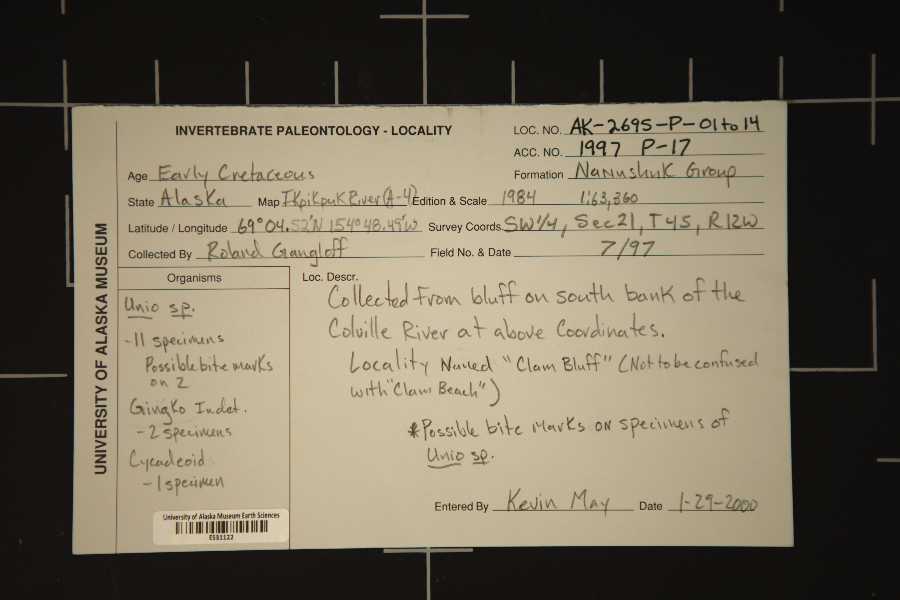 INVERTEBRATE PALEONTOLOGY - LOCALITY
LOC. NO. AK-2695-P-01 to 14
ACC. NO. 1997 P-17
Age Early Cretaceous
Formation Nanushuk Group
State Alaska Map Ikpikpuk River (A-4) Edition & Scale 1984 1:63,360
Latitude / Longitude 69°04.52'N 154°48.49'W Survey Coords. SW1/4, Sec 21, T4S, R12W
Collected By Roland Gangloff Field No. & Date 7/97
UNIVERSITY OF ALASKA MUSEUM
Organisms
Unio sp.
-11 specimens
Possible bite marks
on 2
Gingko Indet.
- 2 specimens
Cycadeoid
- 1 specimen
Loc. Descr.
Collected from bluff on south bank of the
Colville River at above Coordinates.
Locality Named "Clam Bluff" (Not to be confused
with "Clam Beach")
*Possible bite marks on specimens of
Unio sp.
Entered By Kevin May Date 1-29-2000
University of Alaska Museum Earth Sciences
ES31122